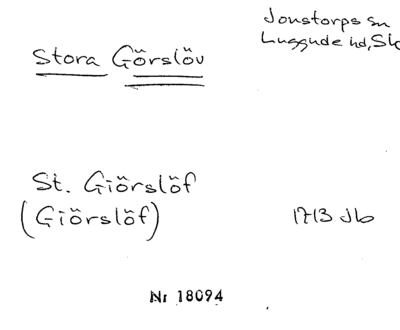 Jonstorps sn
Luggude hd, Sk
Stora Görslöv
St. Giörslöf
(Giörslöf)
1713 Jb
Nr 18094